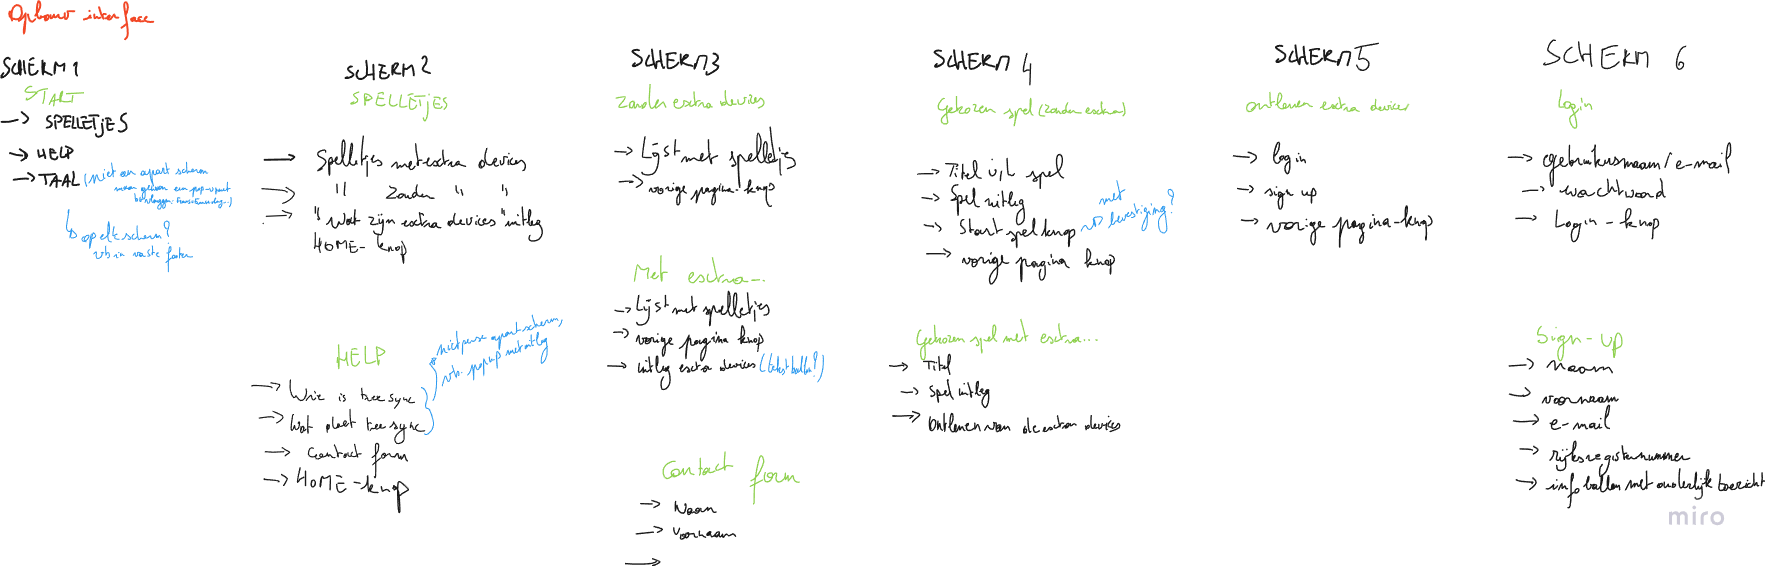 Opbouw interface
SCHERM 1
START
→ SPELLETJES
→ HELP
→ TAAL (niet een apart scherm
maar gewoon een pop-up met
op elk scherm?
vb in vaste footer
SCHERM 2
SPELLETJES
→ Spelletjes met extra devices
→ " zonder " "
→ "Wat zijn extra devices" uitleg
HOME-knop
HELP
→ Wie is tree sync
→ Wat doet tree sync
niet perse apart scherm,
vb. pop up met uitleg
→ Contact form
→ HOME-knop
SCHERM 3
Zonder extra devices
→ Lijst met spelletjes
→ vorige pagina-knop
Met extra...
→ Lijst met spelletjes
→ vorige pagina knop
→ uitleg extra devices (tekstballon?)
Contact form
→ Naam
→ Voornaam
→
SCHERM 4
Gekozen spel (zonder extra)
→ Titel v/h spel
→ Spel uitleg
→ Start spel knop → met bevestiging?
→ vorige pagina knop
Gekozen spel met extra...
→ Titel
→ Spel uitleg
→ Ontlenen van de extra devices
SCHERM 5
ontlenen extra devices
→ log in
→ sign up
→ vorige pagina-knop
SCHERM 6
Login
→ gebruikersnaam/e-mail
→ wachtwoord
→ Login-knop
Sign-up
→ naam
→ voornaam
→ e-mail
→ rijksregisternummer
→ info ballon met ouderlijk toezicht
miro